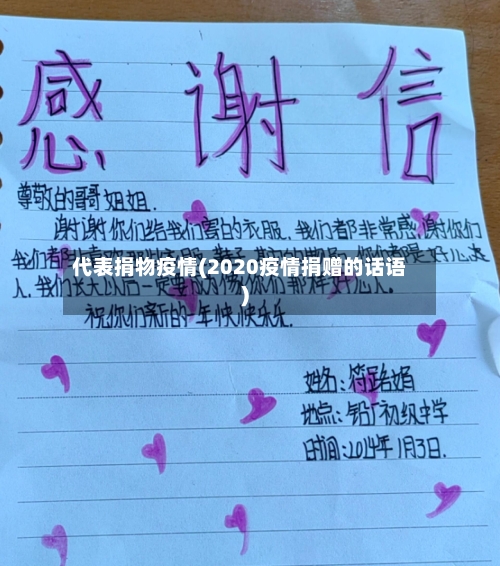 感谢信
尊敬的哥姐姐.
谢谢你们给我们寄的衣服.我们都非常感谢你们
我们都
代表捐物疫情(2020疫情捐赠的话语
)
人.我们长大以后一定要成为像你们那样好心人.
祝你们新的一年快快乐乐.
姓名:符路娟
地点:铅厂初级中学
时间:2014年1月3日.